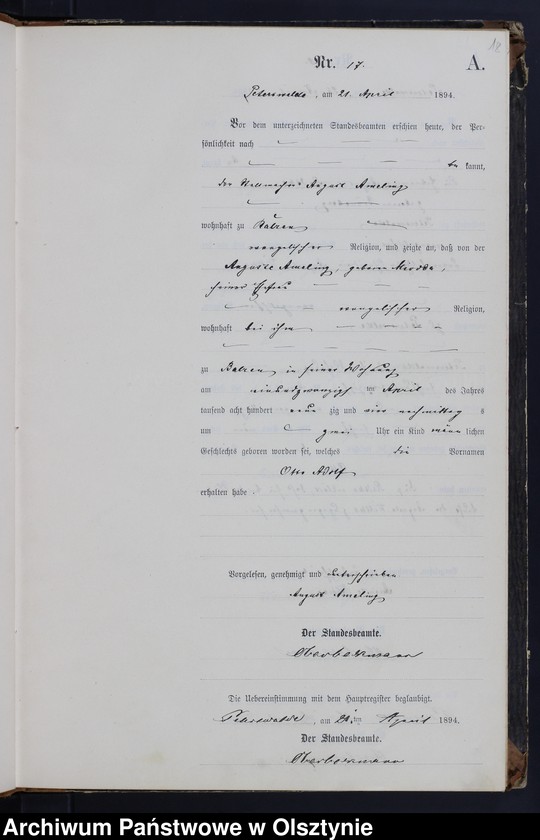 18
Nr. 17.
A.
Peterswalde, am 21. April 1894.
Vor dem unterzeichneten Standesbeamten erschien heute, der Per-
sönlichkeit nach
be kannt,
der Stellmacher August Ameling
wohnhaft zu Balzen
evangelischer Religion, und zeigte an, daß von der
Auguste Ameling, geboren
seiner Ehefrau
evangelischer Religion,
wohnhaft bei ihm
zu Balzen in seiner Wohnung
am einundzwanzigsten ten April des Jahres
tausend acht hundert neun zig und vier nachmittag s
um zwei Uhr ein Kind männ lichen
Geschlechts geboren worden sei, welches die Vornamen
Otto Adolf
erhalten habe
Vorgelesen, genehmigt und unterschrieben
August Ameling
Der Standesbeamte.
Die Uebereinstimmung mit dem Hauptregister beglaubigt.
Peterswalde, am 21. ten April 1894.
Der Standesbeamte.
Archiwum Państwowe w Olsztynie